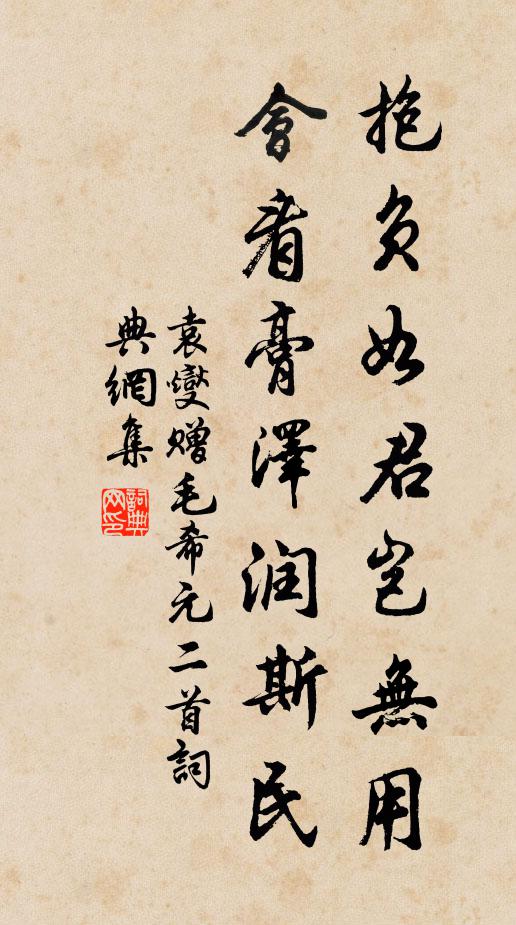 抱負如君豈無用
會看膏澤润斯民
袁燮赠毛希元二首詞
典網集
詞典
网印